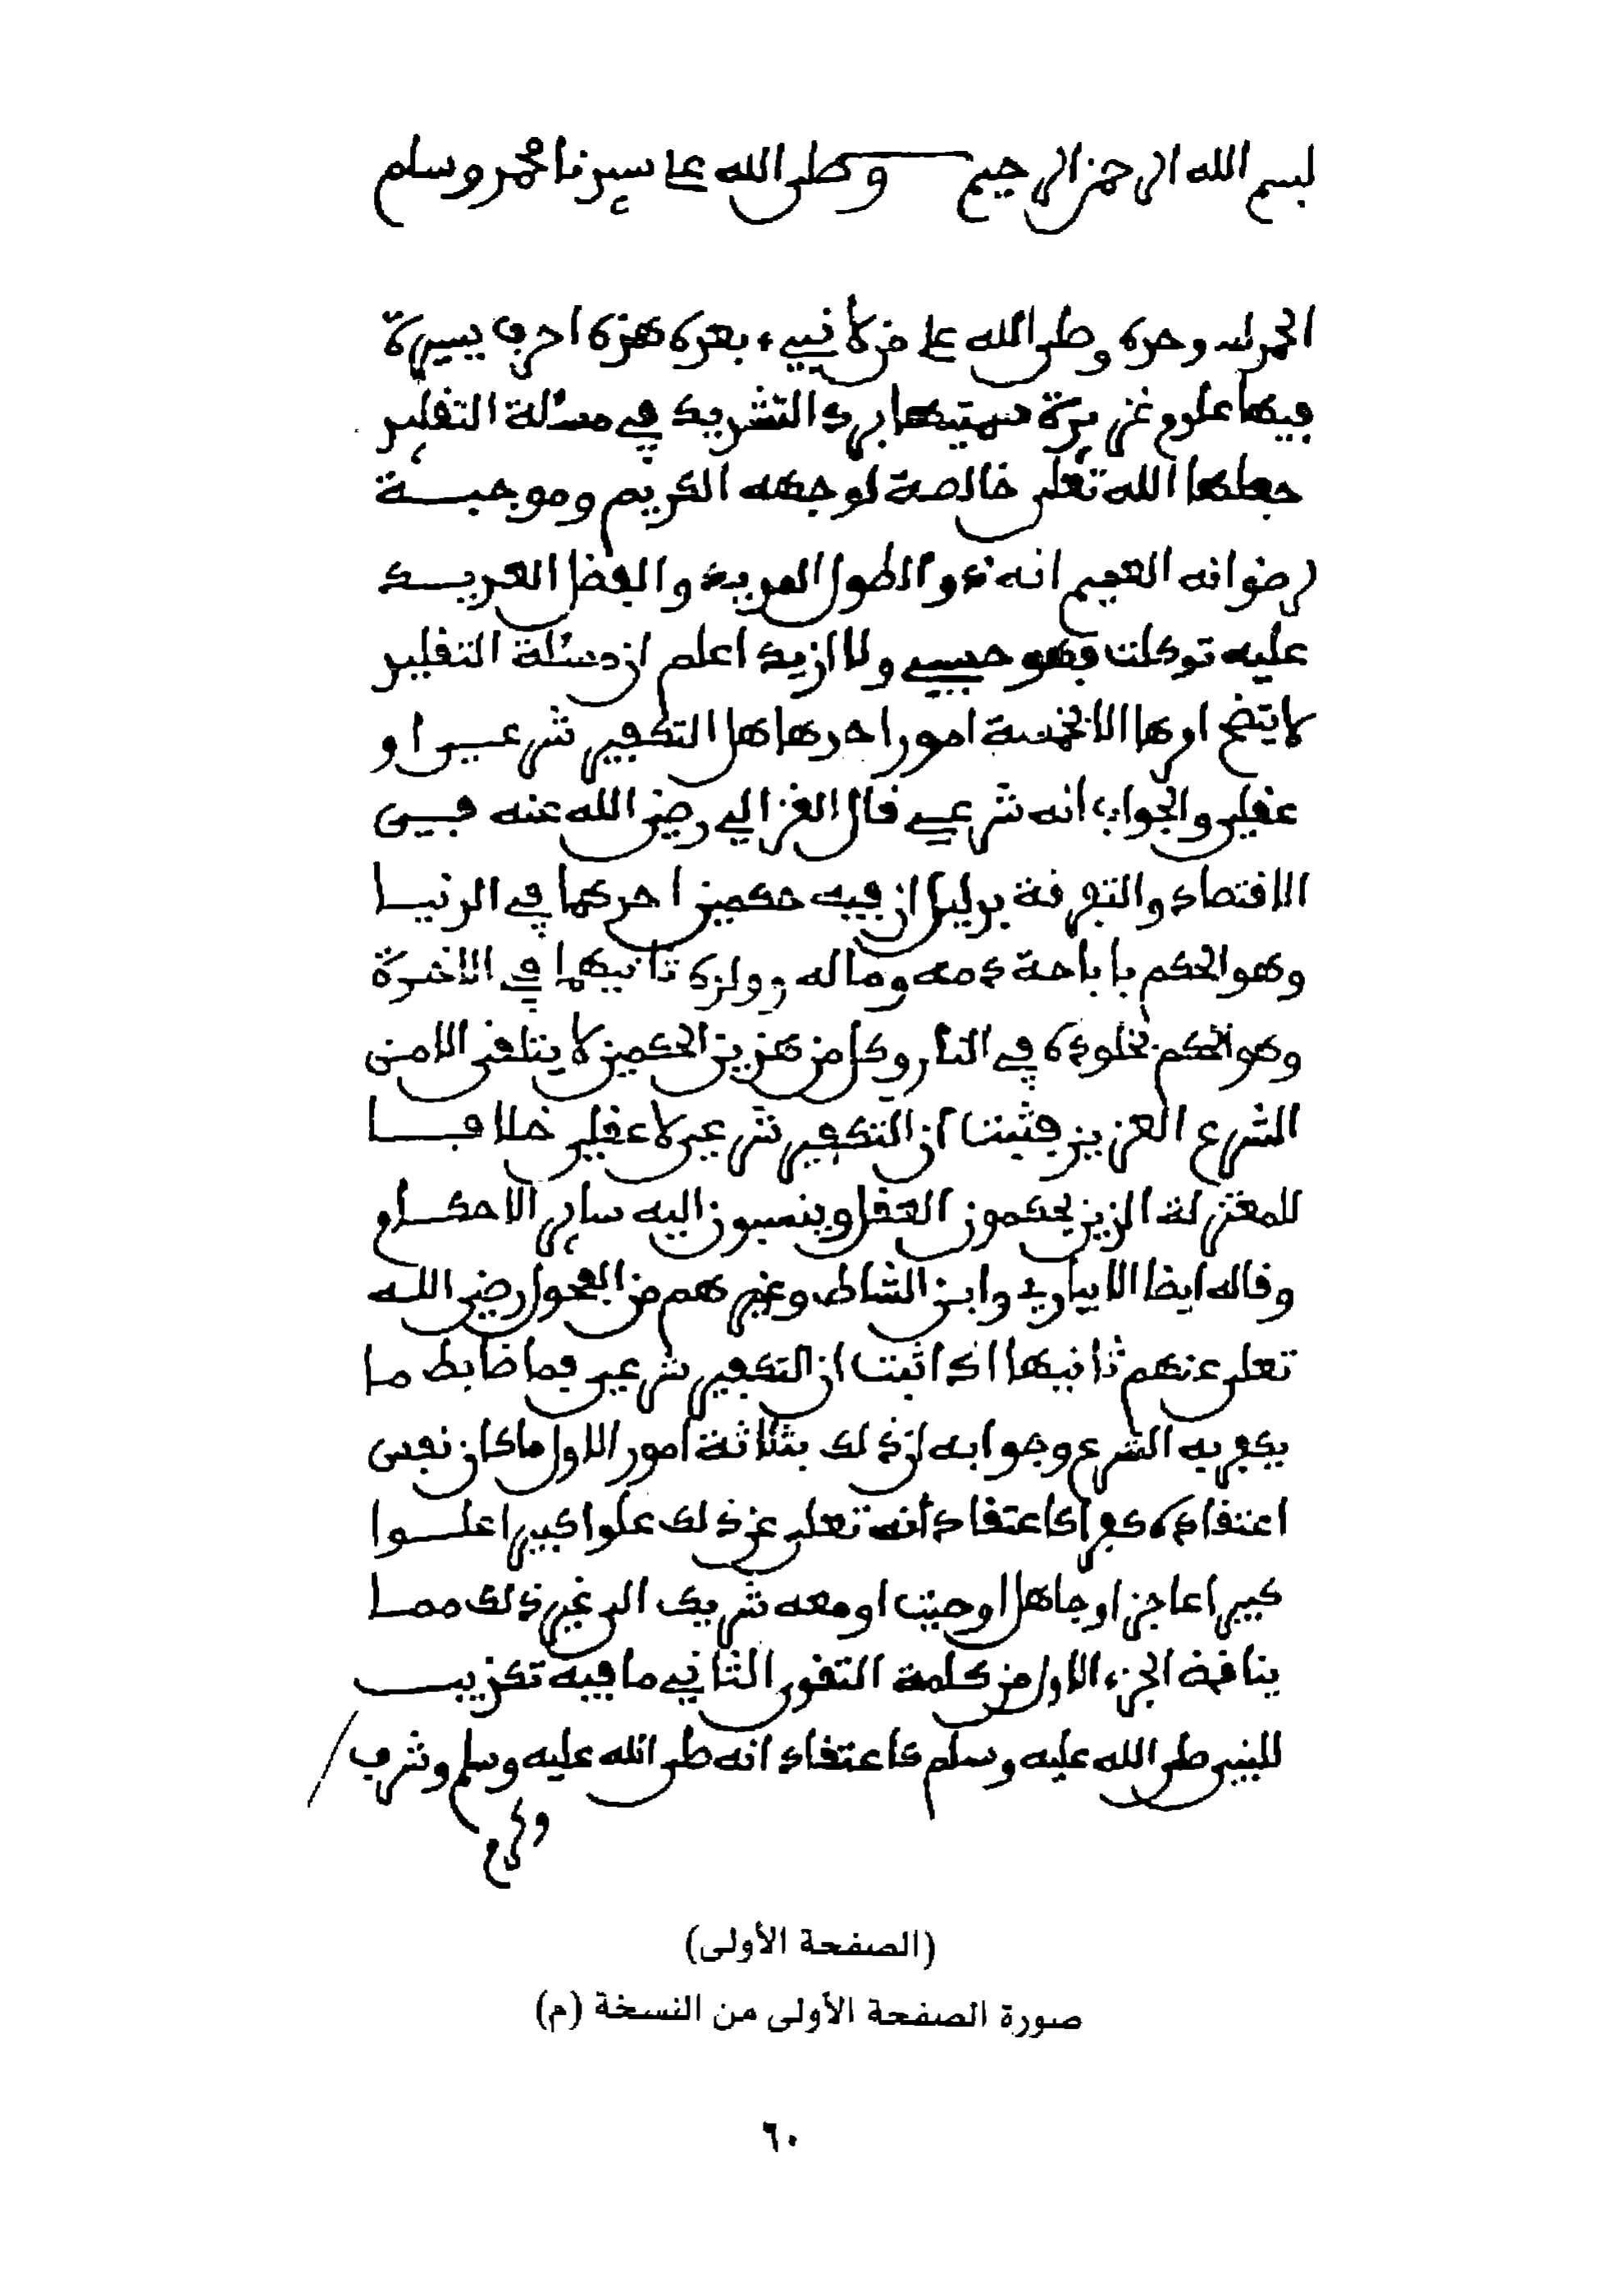 بسم الله الرحمن الرحيم وصلى الله على سيدنا محمد وسلم
الحمد لله وحده وصلى الله على من لا نبيء بعده هذه احرف يسيرة
فيها علوم غزيرة سميتها برد التشديد في مسئلة التقليد
جعلها الله تعلى خالصة لوجهه الكريم وموجبة
لرضوانه العميم انه ذو الطول المريد والفضل العديد
عليه توكلت فهو حسبي ولا ازيد اعلم ان مسئلة التقليد
لا يتضح امرها الا بخمسة امور احدها هل التكفير شرعي او
عقلي والجواب انه شرعي قال الغزالي رضي الله عنه في
الاقتصاد والتفرقة بدليل ان فيه حكمين احدهما في الدنيا
وهو الحكم باباحة دمه وماله وولده ثانيهما في الاخرة
وهو الحكم بخلوده في النار وكل من هذين الحكمين لا يتلقى الا من
الشرع العزيز فثبت ان التكفير شرعي لا عقلي خلافا
للمعتزلة الذين يحكمون العقل وينسبون اليه سائر الاحكام
وقاله ايضا الابياري وابن الشاط وغيرهم من الفحول رضي الله
تعلى عنهم ثانيها اذا ثبت ان التكفير شرعي فما ضابط ما
يكفر به الشرع وجوابه ان ذلك بثلاثة امور الاول ما كان نفس
اعتقاده كفرا كاعتقاد انه تعلى عن ذلك علوا كبيرا علوا
كبيرا عاجز او جاهل او ميت او معه شريك الى غير ذلك مما
يناقض الجزء الاول من كلمة التقوى الثاني ما فيه تكذيب
للنبي صلى الله عليه وسلم كاعتقاد انه صلى الله عليه وسلم وشرف
وكرم
(الصفحة الأولى)
صورة الصفحة الأولى من النسخة (م)
٦٠